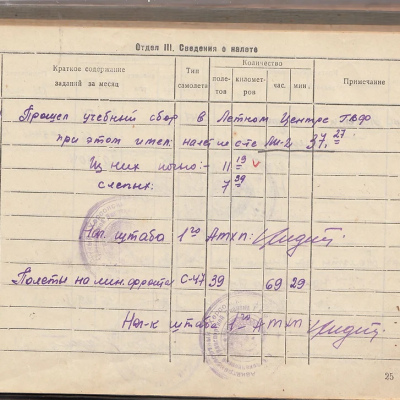 Отдел III. Сведения о налете
Краткое содержание заданий за месяц
Тип самолета
Количество
полетов
километров
час.
мин.
Примечание
Прошел учебный сбор в Летном Центре ГВФ
при этом имел налет на с-те Ли-2 37.27
Из них ночью:- 11 19
слепых: 7 39
Нач. штаба 1го АТХП:
Полеты на мин. фронта С-47 39 69 29
Нач-к штаба 1го АТХП
25